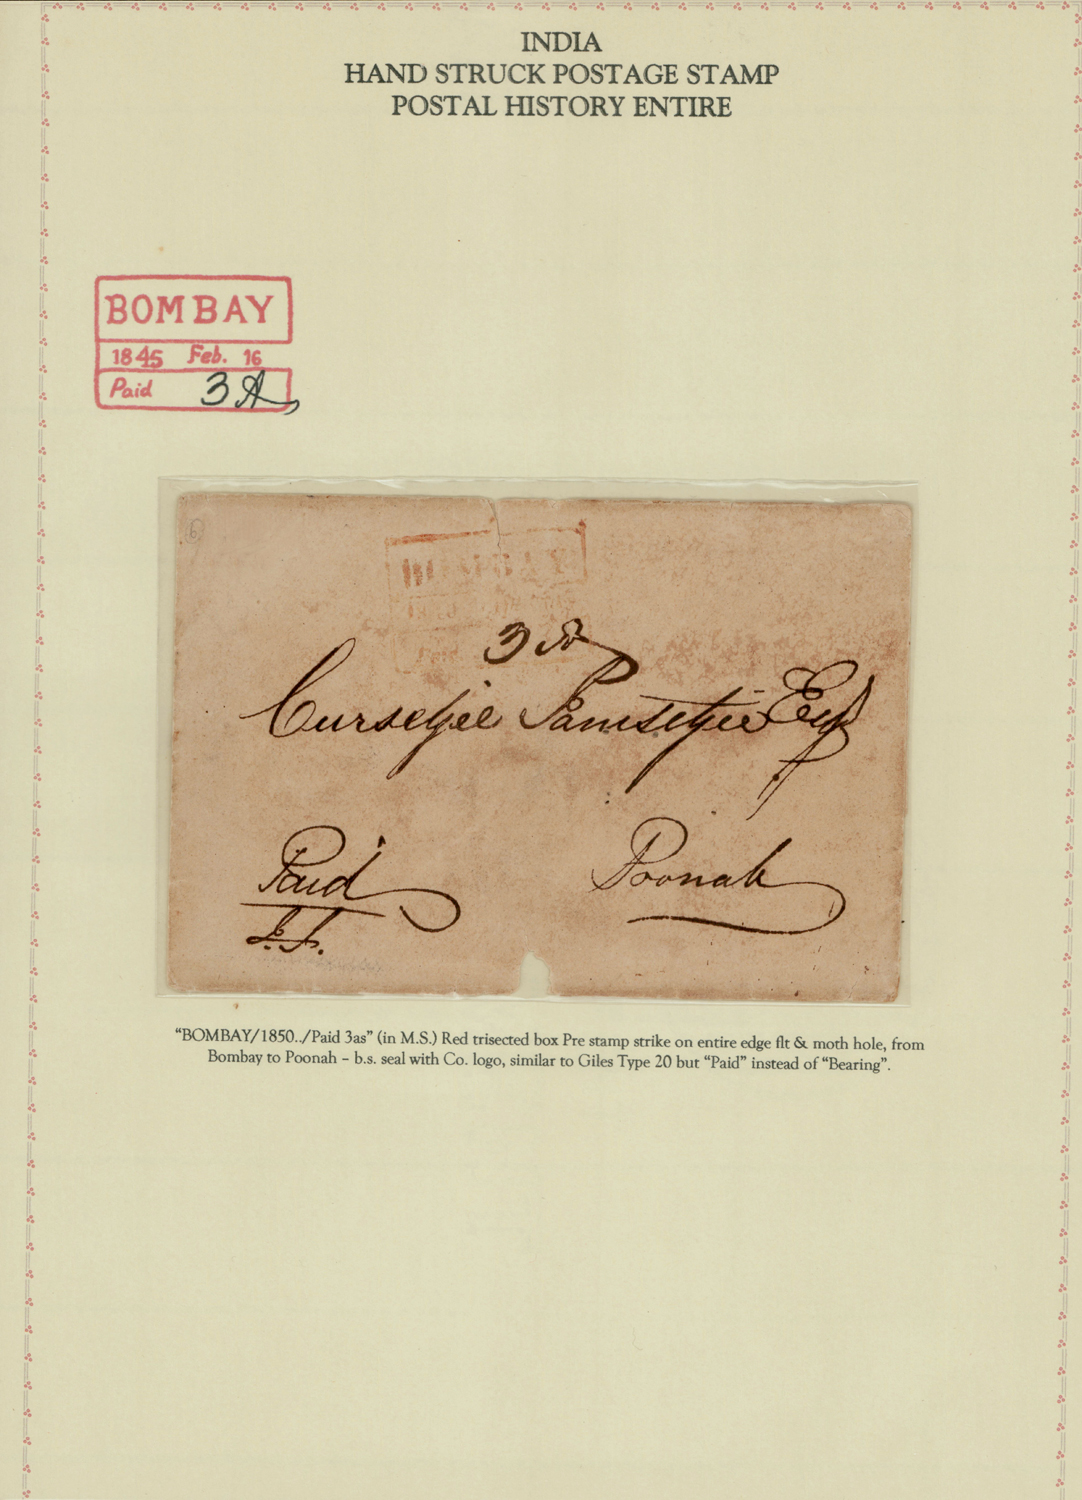 INDIA
HAND STRUCK POSTAGE STAMP
POSTAL HISTORY ENTIRE
BOMBAY
1845 Feb. 16
Paid 3 A
6
BOMBAY
Paid
3 A
Cursetjee Jamsetjee Esqr
Paid
Poonah
J.J.
"BOMBAY/1850../Paid 3as" (in M.S.) Red trisected box Pre stamp strike on entire edge flt & moth hole, from
Bombay to Poonah – b.s. seal with Co. logo, similar to Giles Type 20 but "Paid" instead of "Bearing".